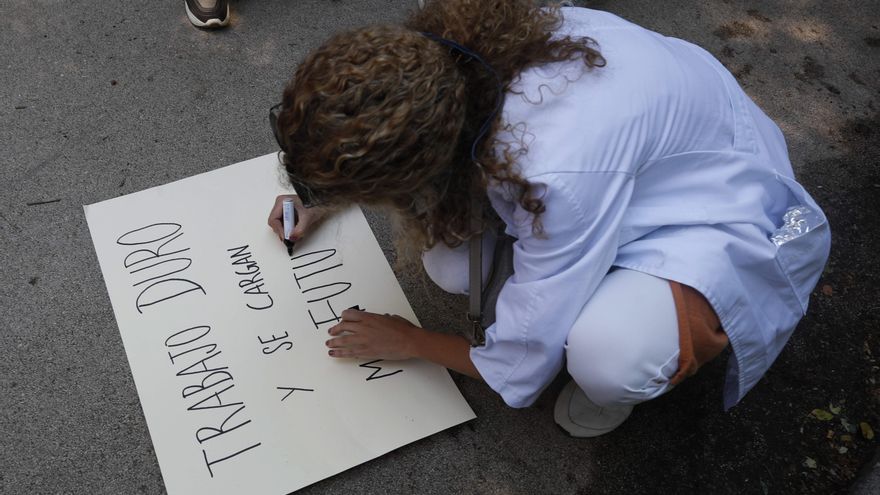 TRABAJO DURO
Y SE CARGAN
M FUTU